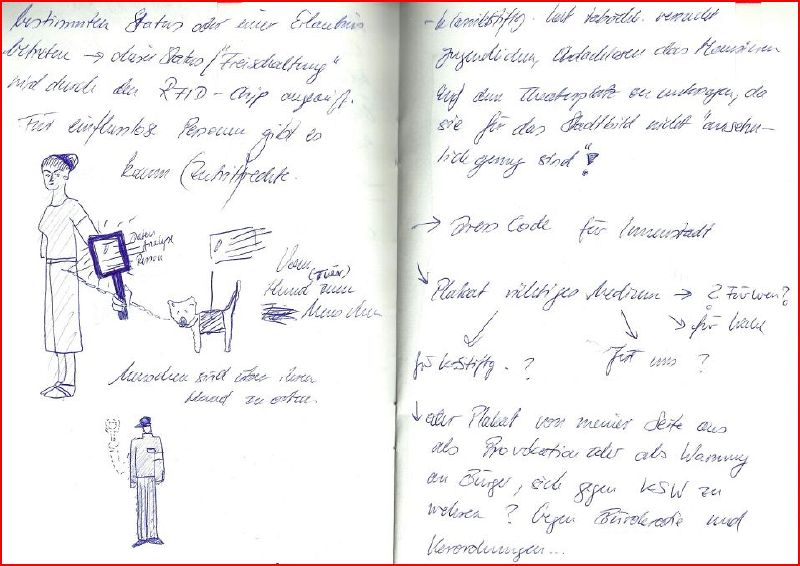 bestimmten Status oder einer Erlaubnis
betreten → dieser Status/"Freischaltung"
wird durch den RFID-Chip
Für einflusslose Personen gibt es
kaum Zutrittsrechte.
Daten
Analyse
Person
Vom
(Tier)
Hund zum
Menschen
Menschen sind ihren
Hund zu orten.
hat versucht
Jugendlichen, Obdachlosen das Musizieren
auf dem Theaterplatz zu untersagen, da
sie für das Stadtbild nicht "ansehn-
lich genug sind"!
→ Dress Code für Innenstadt
Plakat richtiges Medium → ? Für wen?
für Leute
für KStiftg. ?
für uns ?
oder Plakat von meiner Seite aus
als Provokation oder als Warnung
an Bürger, sich gegen KSW zu
wehren? Gegen Bürokratie und
Verordnungen...